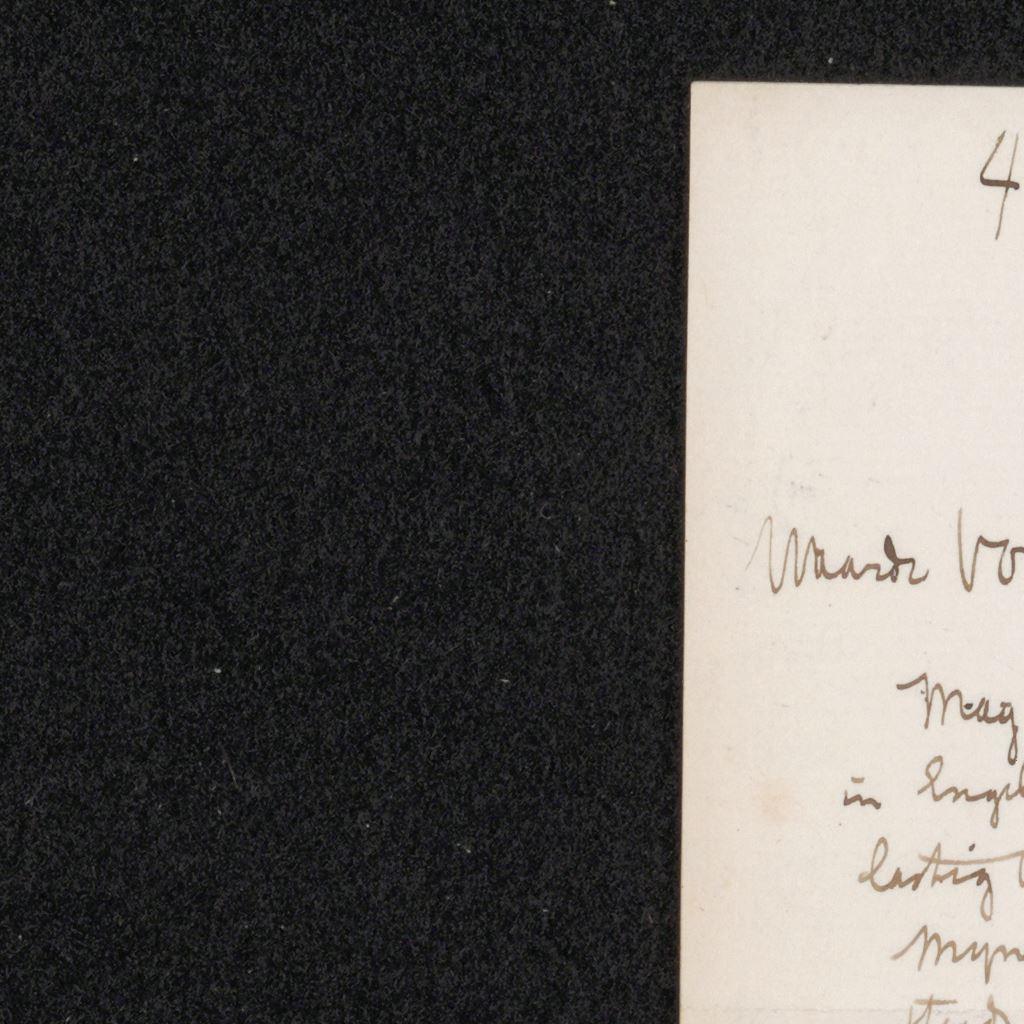 4
Waarde Vo
Mag
in Engel
lastig
Mijn